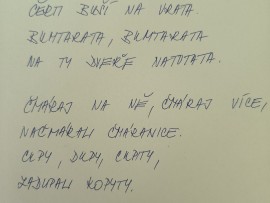 ČERTI BUŠÍ NA VRATA.
BUMTARATA, BUMTARATA
NA TY DVEŘE NATOTATA.
ČMÁRAJ NA NĚ, ČMÁRAJ VÍCE,
NAČMÁRALI ČMÁRANICE.
CUPY, DUPY, CKATY,
ZADUPALI KOPYTY.